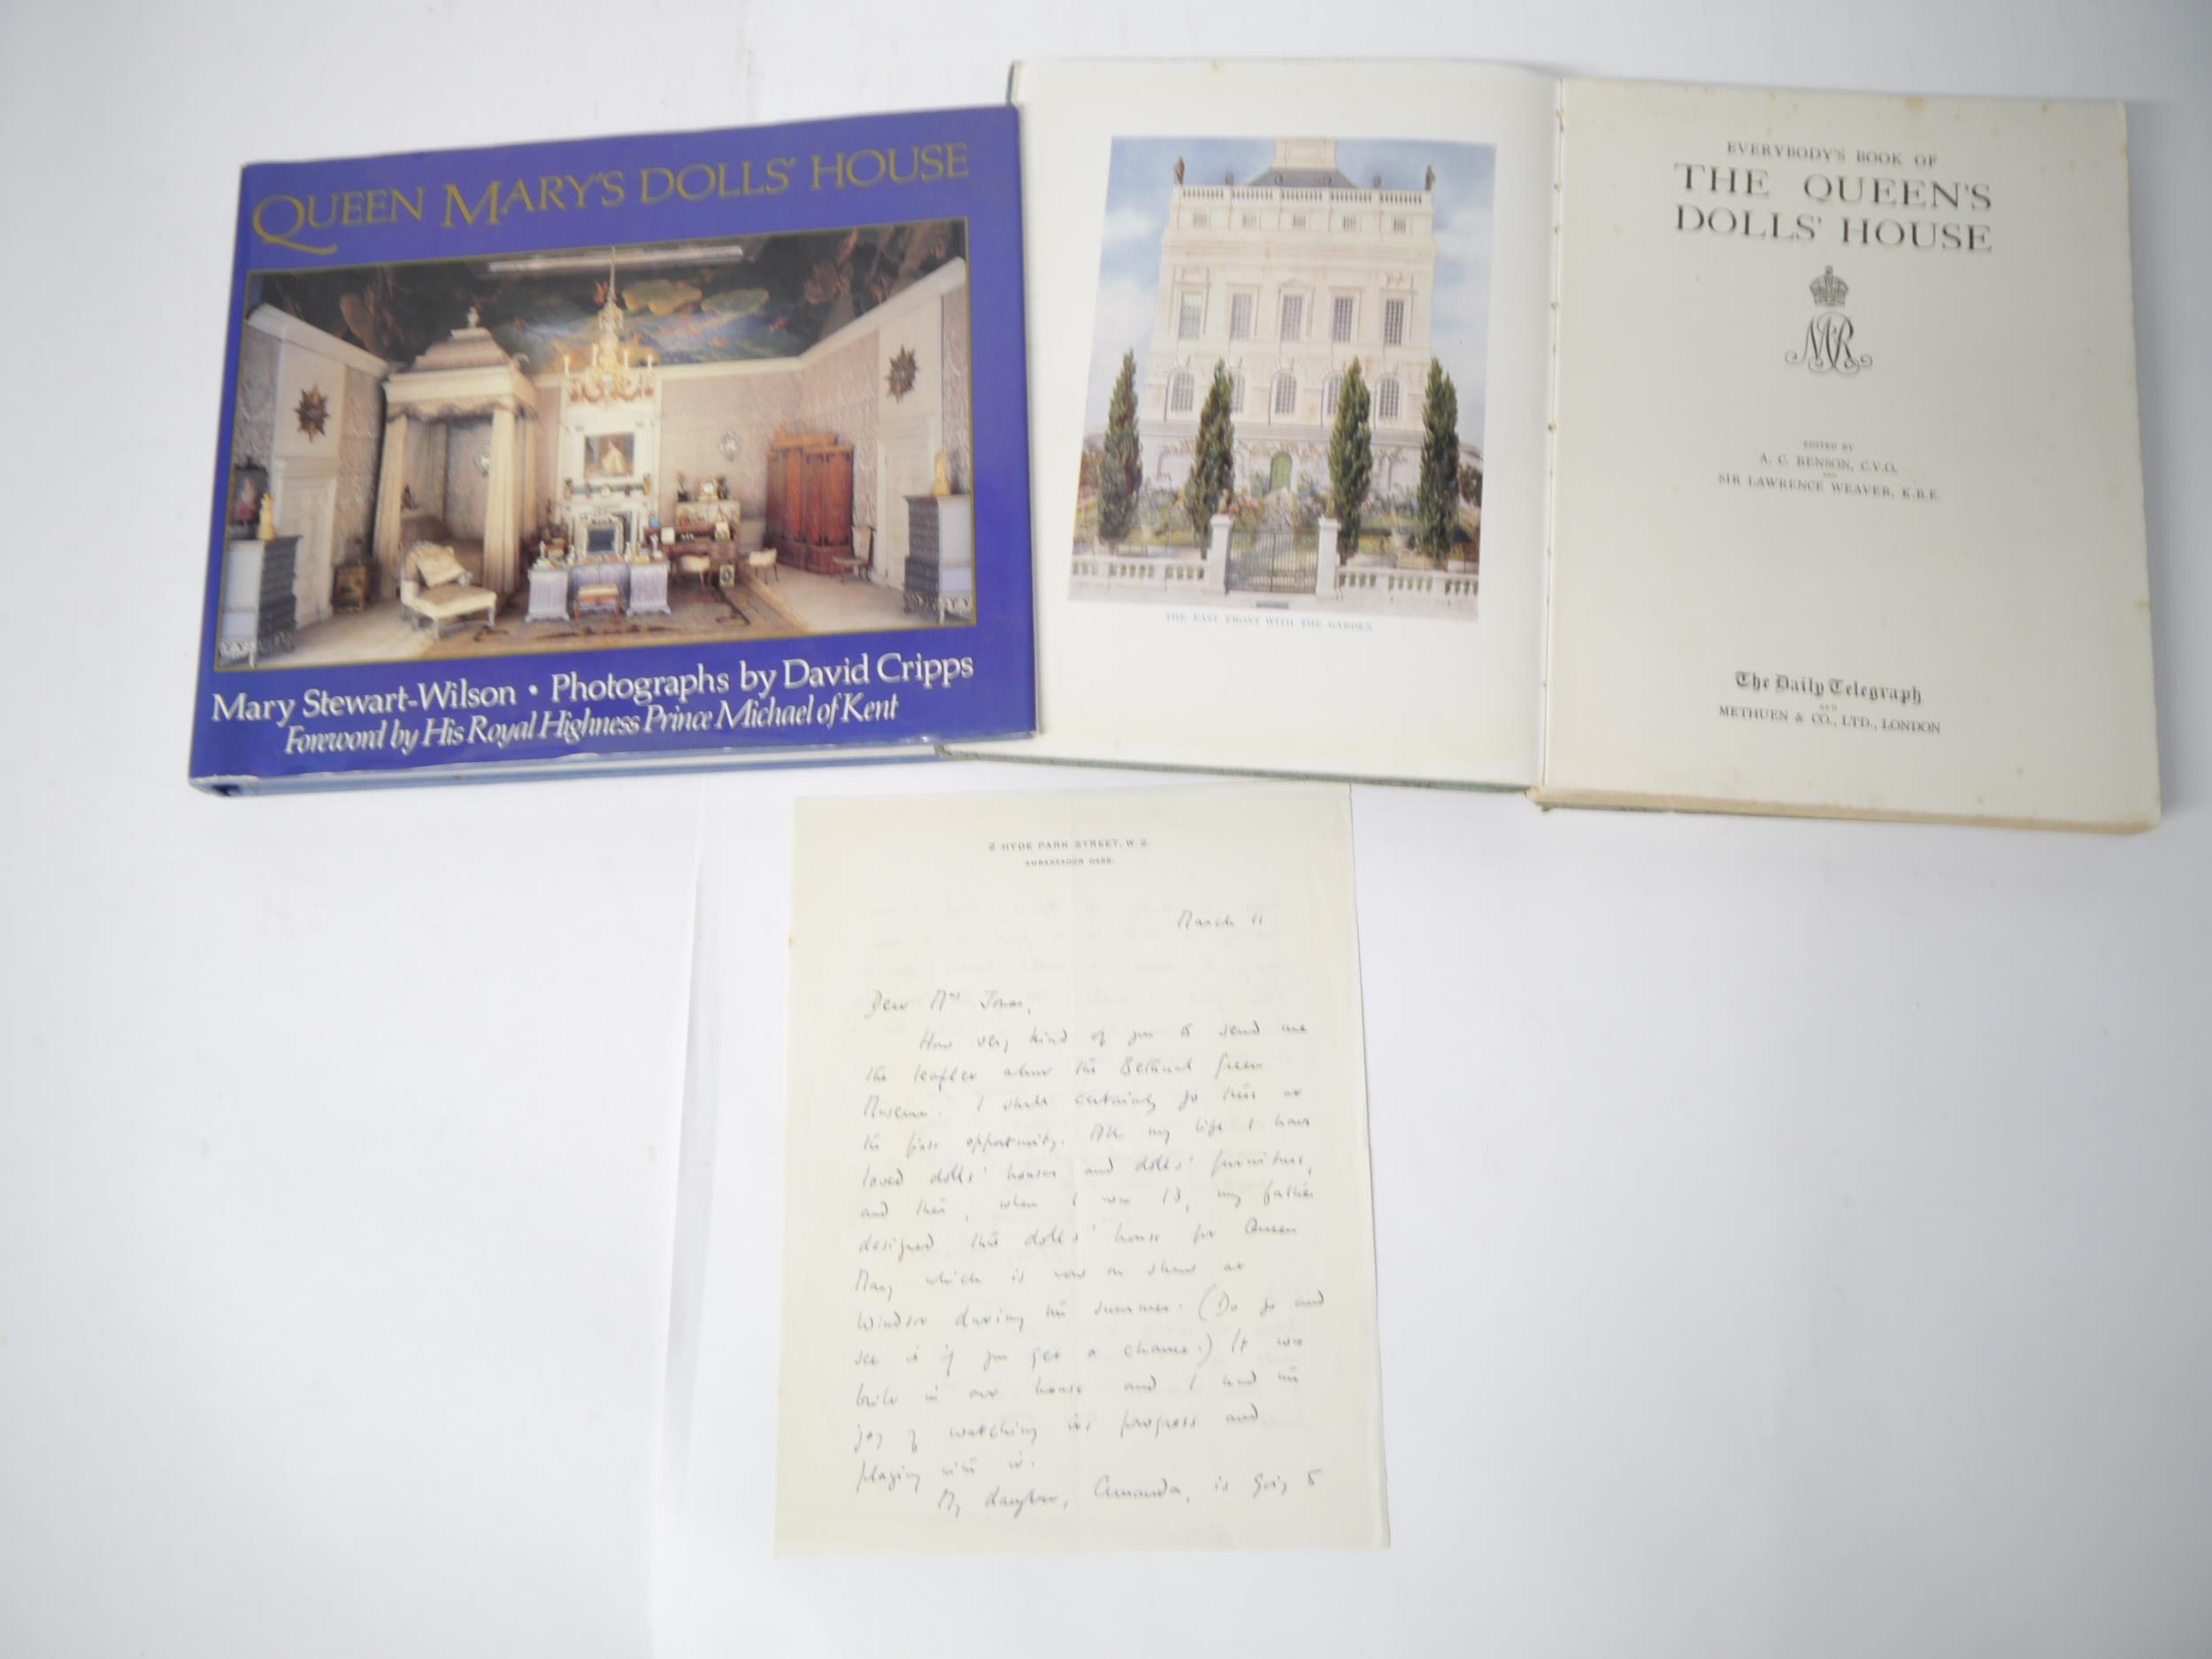 QUEEN MARY'S DOLLS' HOUSE
Mary Stewart-Wilson • Photographs by David Cripps
Foreword by His Royal Highness Prince Michael of Kent
THE EAST FRONT WITH THE GARDEN
EVERYBODY'S BOOK OF
THE QUEEN'S
DOLLS' HOUSE
MR
EDITED BY
A. C. BENSON, C.V.O.
AND
SIR LAWRENCE WEAVER, K.B.E.
The Daily Telegraph
AND
METHUEN & CO., LTD., LONDON
2 HYDE PARK STREET, W.2.
AMBASSADOR
March 11
Dear Mrs Jones,
How very kind of you to send me
the leaflet about the Bethnal Green
Museum. I shall certainly go there at
the first opportunity. All my life I have
loved dolls' houses and dolls' furniture,
and then, when I was 13, my father
designed this dolls' house for Queen
Mary which is now on show at
Windsor during the summer. (Do go and
see it if you get a chance.) It was
built in our house and I had the
joy of watching its progress and
playing with it.
My daughter, Amanda, is going to